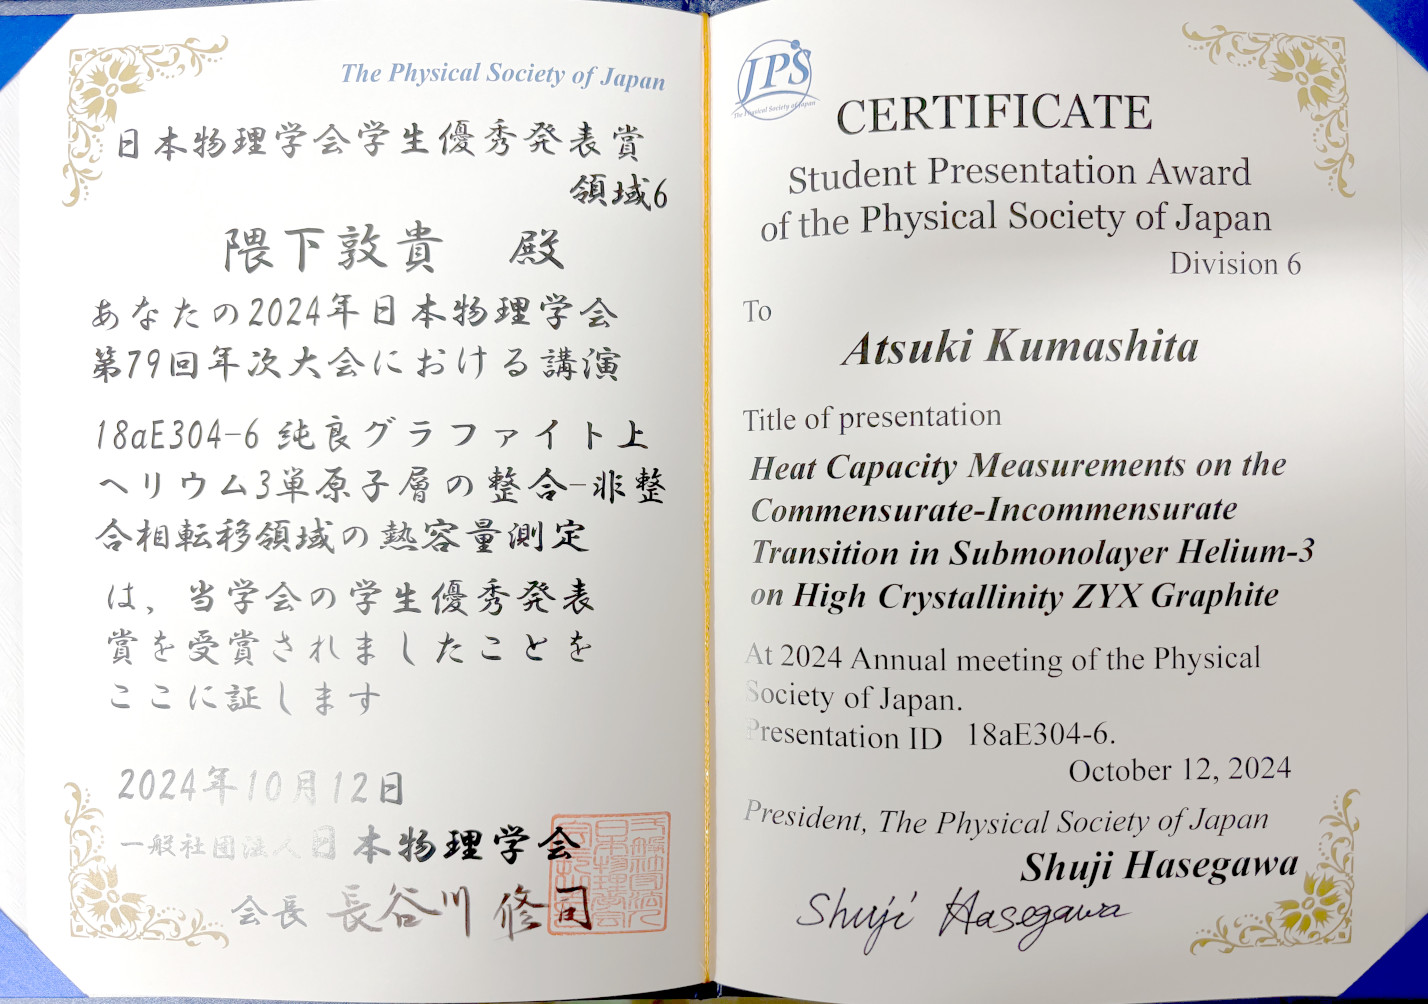 The Physical Society of Japan
日本物理学会学生優秀発表賞
領域6
隈下敦貴 殿
あなたの2024年日本物理学会
第79回年次大会における講演
18aE304-6 純良グラファイト上
ヘリウム3単原子層の整合-非整
合相転移領域の熱容量測定
は、当学会の学生優秀発表
賞を受賞されましたことを
ここに証します
2024年10月12日
一般社団法人日本物理学会
会長 長谷川 修司
JPS
The Physical Society of Japan
CERTIFICATE
Student Presentation Award
of the Physical Society of Japan
Division 6
To
Atsuki Kumashita
Title of presentation
Heat Capacity Measurements on the
Commensurate-Incommensurate
Transition in Submonolayer Helium-3
on High Crystallinity ZYX Graphite
At 2024 Annual meeting of the Physical
Society of Japan.
Presentation ID 18aE304-6.
October 12, 2024
President, The Physical Society of Japan
Shuji Hasegawa
Shuji Hasegawa